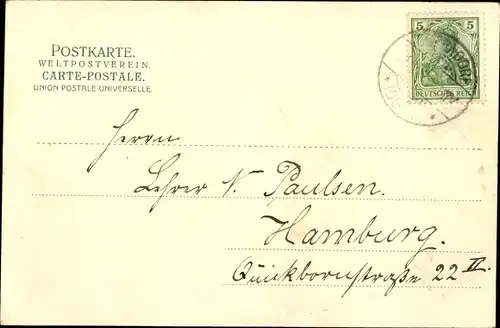 POSTKARTE.
WELTPOSTVEREIN.
CARTE-POSTALE.
UNION POSTALE UNIVERSELLE.
5 5
DEUTSCHES REICH
Herrn
Lehrer N. Paulsen.
Hamburg.
Quickbornstraße 22 II.